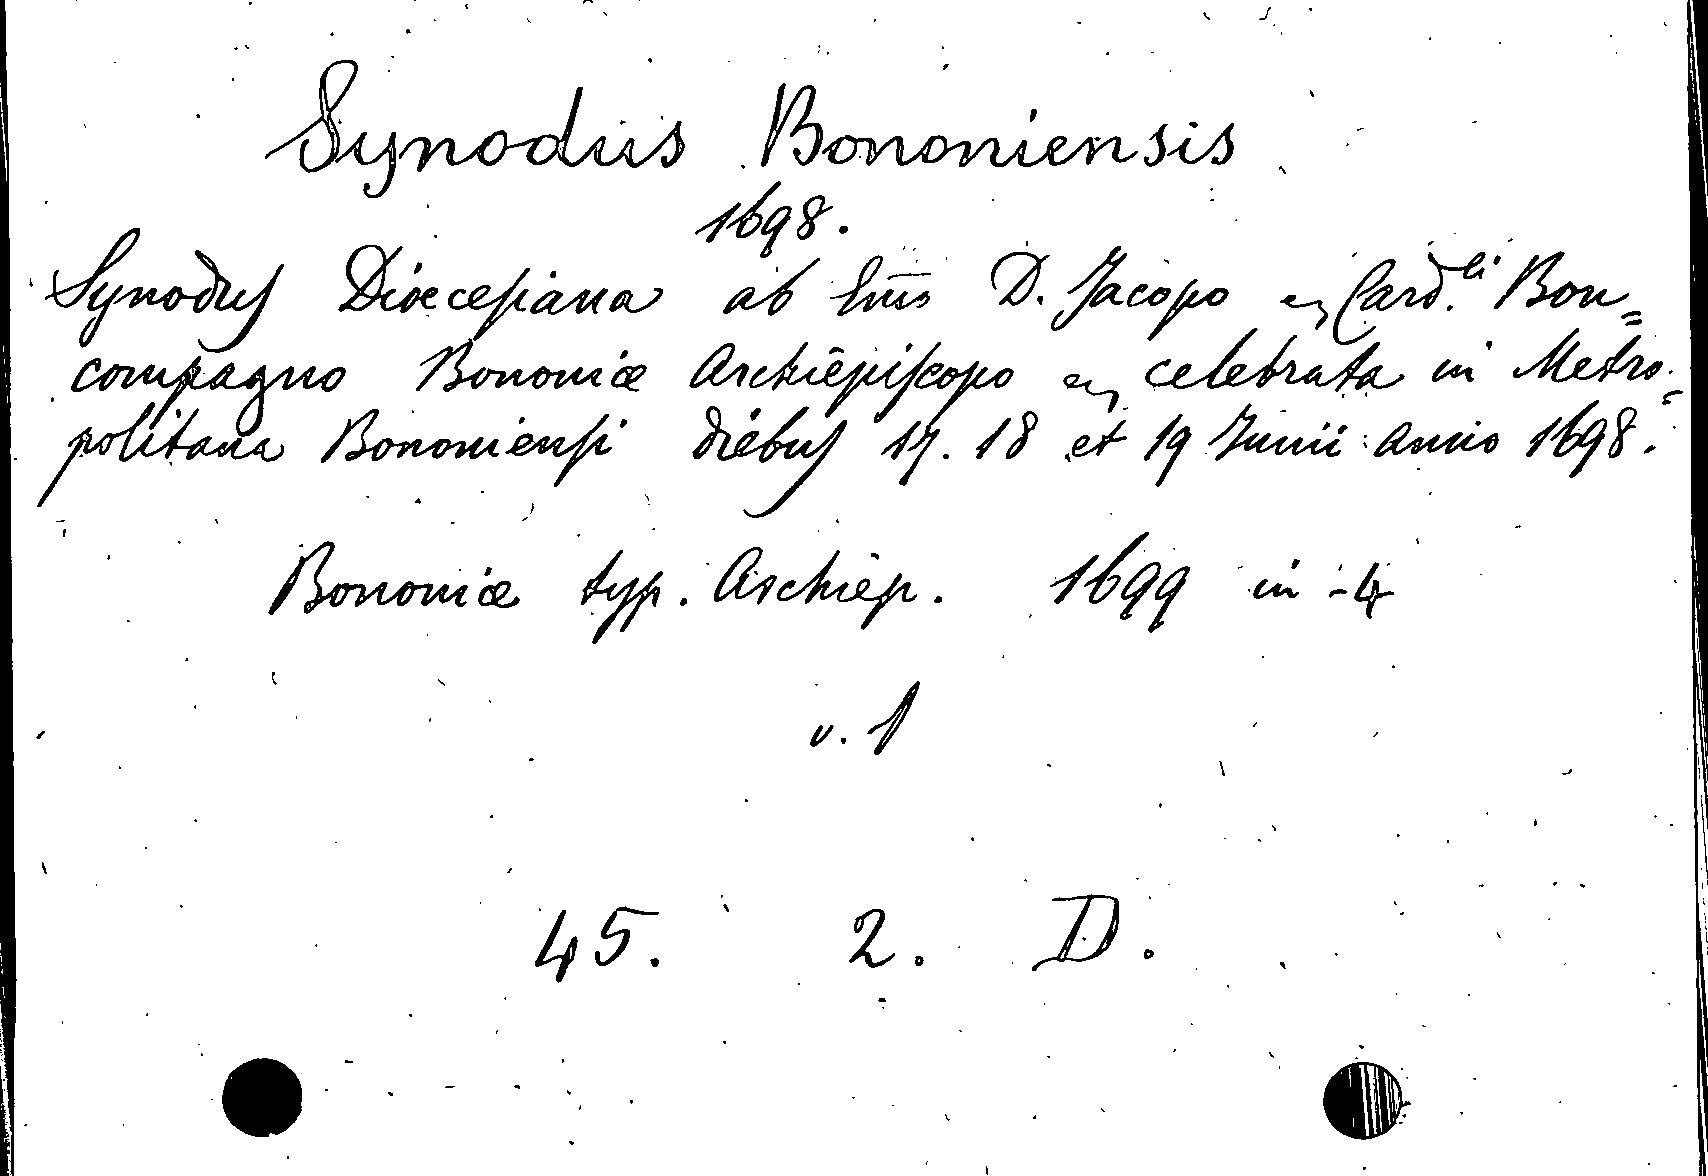 Synodus Bononiensis
1698.
Synodus Diœcesiana ab Em̄o D. Jacopo Card.li Bon=
compagno Bononiæ Archiepiscopo celebrata in Metro=
politana Bononiensi diebus 17. 18 et 19 Junii anno 1698.
Bononiæ typ. Archiep. 1699 in-4
v. 1
45. 2. D.